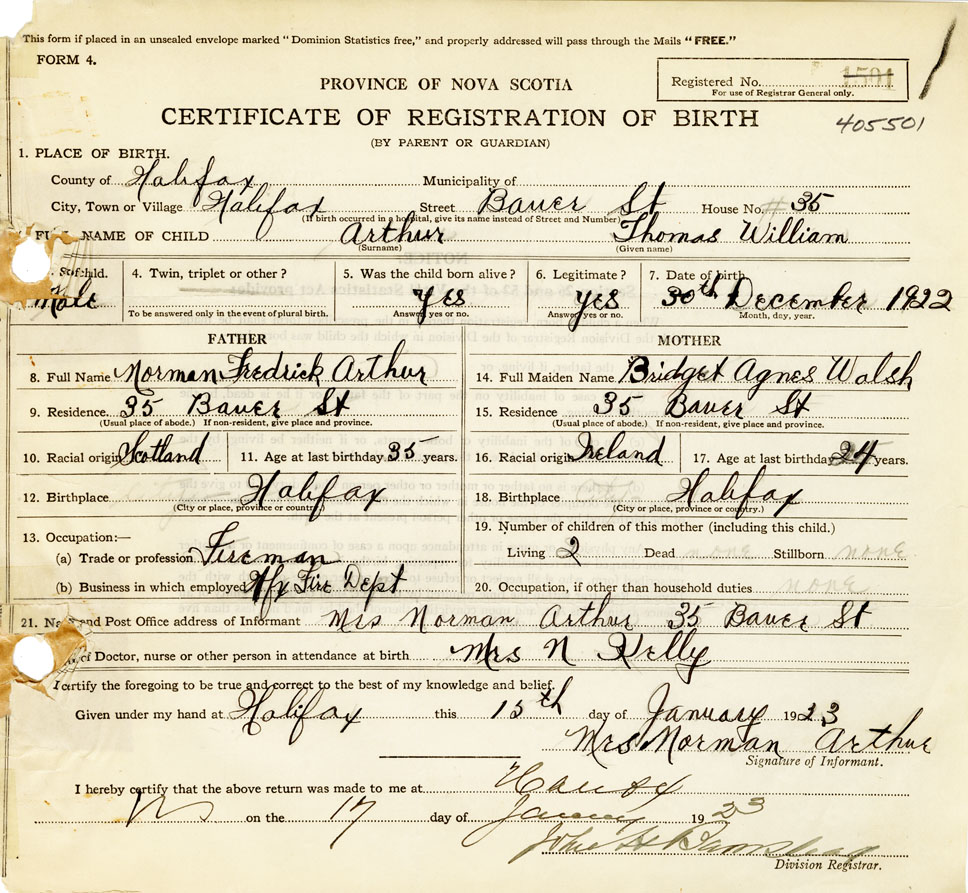 This form if placed in an unsealed envelope marked "Dominion Statistics free," and properly addressed will pass through the Mails "FREE."
FORM 4.
PROVINCE OF NOVA SCOTIA
Registered No. 1501
For use of Registrar General only.
CERTIFICATE OF REGISTRATION OF BIRTH
405501
(BY PARENT OR GUARDIAN)
1. PLACE OF BIRTH.
County of Halifax Municipality of
City, Town or Village Halifax Street Bauer St House No. # 35
(If birth occurred in a hospital, give its name instead of Street and Number)
NAME OF CHILD Arthur Thomas William
(Surname) (Given name)
of child. 4. Twin, triplet or other ? 5. Was the child born alive ? 6. Legitimate ? 7. Date of birth
Male Yes Yes 30th December 1922
To be answered only in the event of plural birth. Answer yes or no. Answer yes or no. Month, day, year.
FATHER MOTHER
8. Full Name Norman Fredrick Arthur 14. Full Maiden Name Bridget Agnes Walsh
9. Residence. 35 Bauer St 15. Residence 35 Bauer St
(Usual place of abode.) If non-resident, give place and province. (Usual place of abode.) If non-resident, give place and province.
10. Racial origin Scotland 11. Age at last birthday 35 years. 16. Racial origin Ireland 17. Age at last birthday 24 years.
12. Birthplace Halifax 18. Birthplace Halifax
(City or place, province or country.) (City or place, province or country.)
19. Number of children of this mother (including this child.)
13. Occupation:—
(a) Trade or profession Fireman Living 2 Dead none Stillborn none
(b) Business in which employed Hfx Fire Dept 20. Occupation, if other than household duties none
21. and Post Office address of Informant Mrs Norman Arthur 35 Bauer St
of Doctor, nurse or other person in attendance at birth Mrs N Kelly
I certify the foregoing to be true and correct to the best of my knowledge and belief.
Given under my hand at Halifax this 15th day of January 1923
Mrs Norman Arthur
Signature of Informant.
I hereby certify that the above return was made to me at
on the 17 day of 1923
John H
Division Registrar.